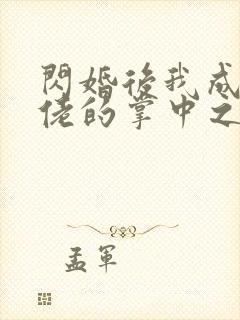 閃婚後我成
佬的掌中之
孟軍